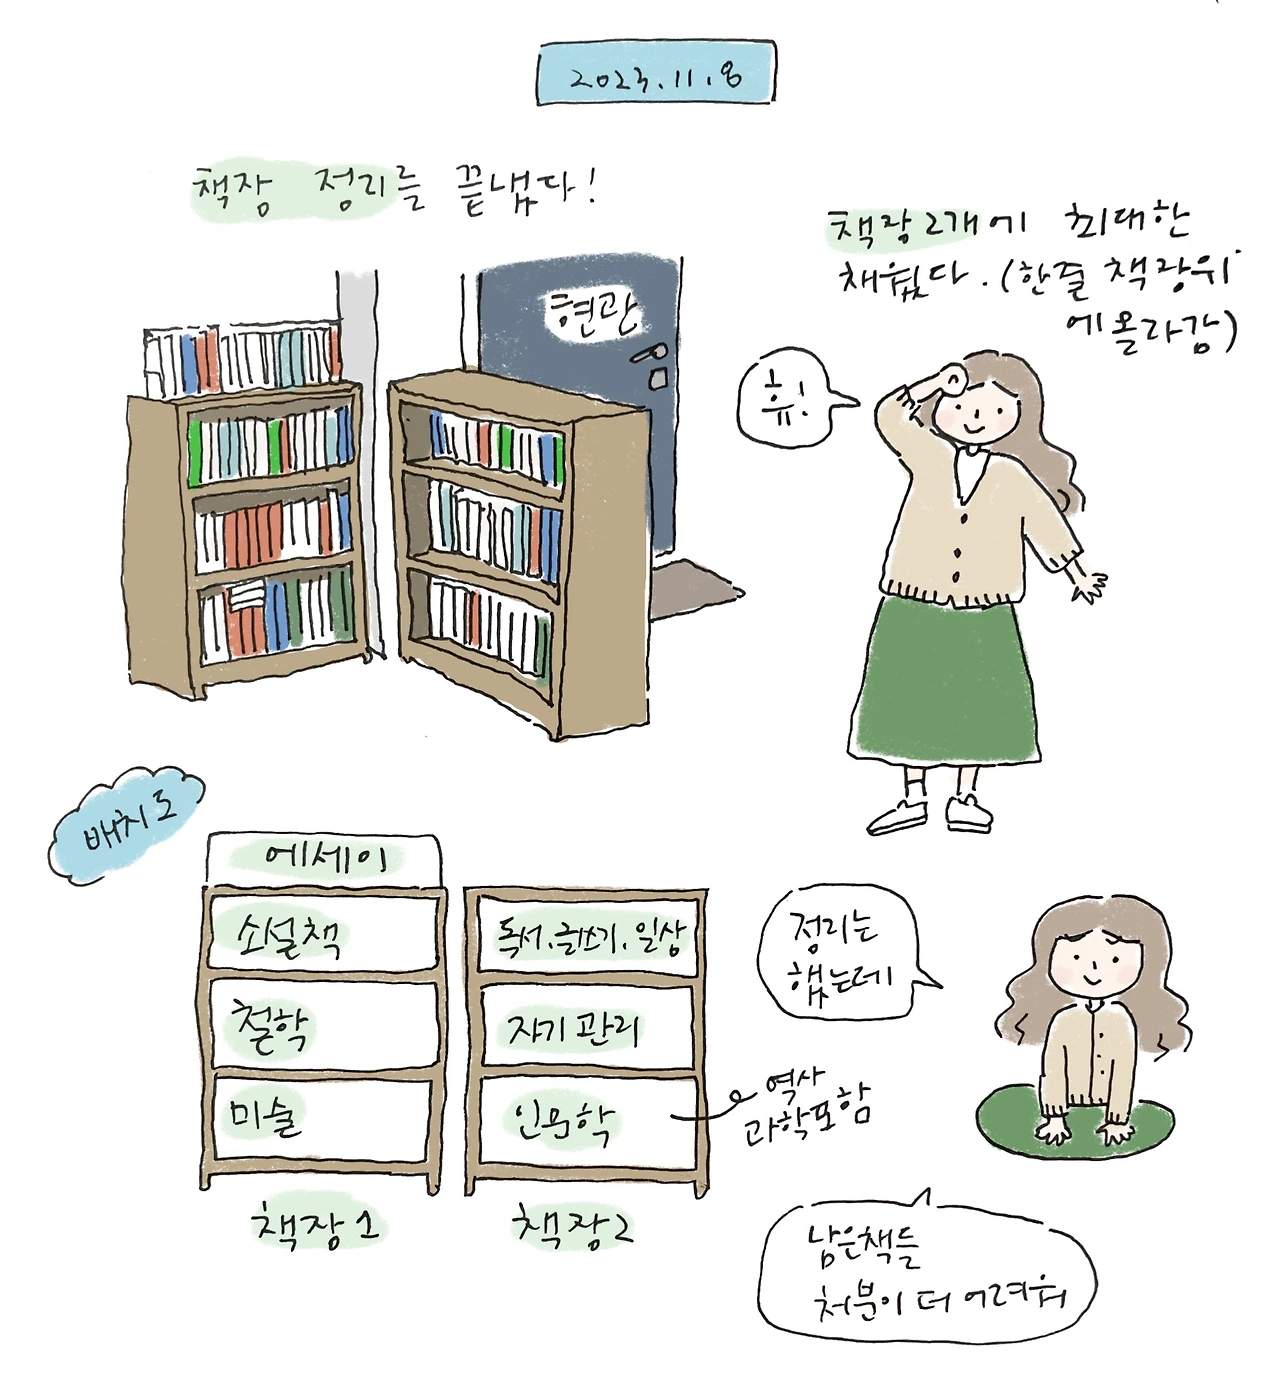 2023.11.8
책장 정리를 끝냈다!
책장 2개에 최대한
채웠다. (한줄 책장위
에 올라감)
현관
휴!
배치도
에세이
소설책
철학
미술
책장1
독서.글쓰기.일상
자기 관리
인문학
책장2
역사
과학포함
정리는
했는데
남은책들
처분이 더 어려워